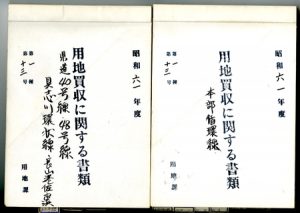 昭和六一年度
用地買収に関する書類
本部循環線
第一種
第十三号
用地課
昭和六一年度
用地買収に関する書類
県道40号線 48号線
具志川環状線
第一種
第十三号
用地課